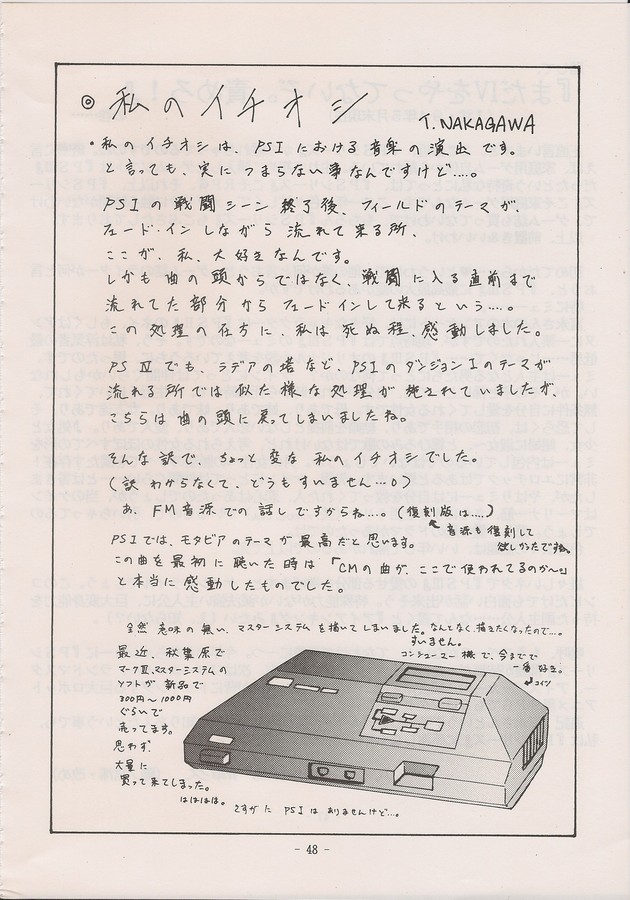 ◎ 私のイチオシ
T.NAKAGAWA
・私のイチオシは、PSIにおける音楽の演出です。
と言っても、実につまらない事なんですけど‥‥。
PSIの戦闘シーン終了後、フィールドのテーマが、
フェード・インしながら流れて来る所、
ここが、私、大好きなんです。
しかも曲の頭からではなく、戦闘に入る直前まで
流れてた部分からフェードインして来るという‥‥。
この処理の在方に、私は死ぬ程、感動しました。
PSⅣでも、ラデアの塔など、PSIのダンジョンIのテーマが
流れる所では似た様な処理が施されていましたが、
こちらは曲の頭に戻ってしまいましたね。
そんな訳で、ちょっと変な私のイチオシでした。
(訳わからなくて、どうもすいません…。)
あ、FM音源での話しですからね…。(復刻版は‥‥)
音源も復刻して
欲しかったですね。
PSIでは、モタビアのテーマが最高だと思います。
この曲を最初に聴いた時は「CMの曲が、ここで使われてるのか〜」
と本当に感動したものでした。
全然意味の無い、マスターシステムを描いてしまいました。なんとなく、描きたくなったので…。
すいません。
コンシューマー機で、今までで
一番好き。
コイツ
最近、秋葉原で
マークⅢ、マスターシステムの
ソフトが新品で
300円〜1000円
ぐらいで
売ってます。
思わず、
大量に
買って来てしまった。
はははは。
さすがにPSIはありませんけど…。
- 48 -